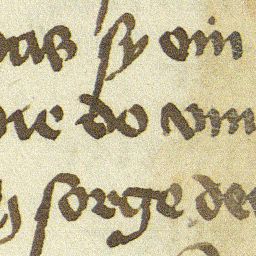 das sy ein
die do vnn
sorge de